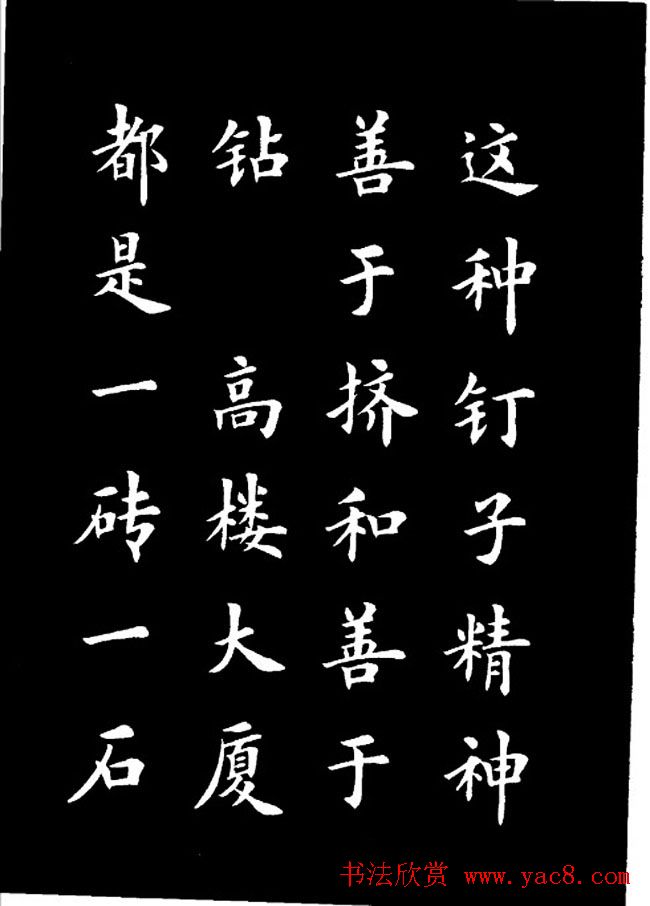 这种钉子精神
善于挤和善于
钻 高楼大厦
都是一砖一石
书法欣赏 www.yac8.com